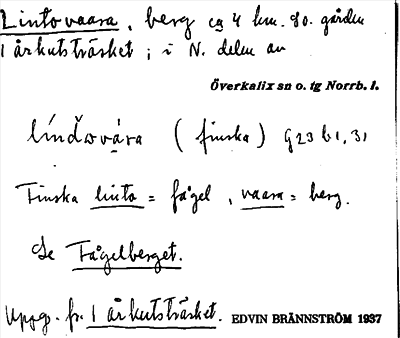 Lintovaara, berg ca 4 km. so. gården
1 årkutsträsket; i N. delen av
Överkalix sn o. tg Norrb. l.
(finska) G 23 b 1, 31
Finska linto = fågel, vaara = berg.
Se Fågelberget.
Uppg. fr. 1 årkutsträsket. EDVIN BRÄNNSTRÖM 1937